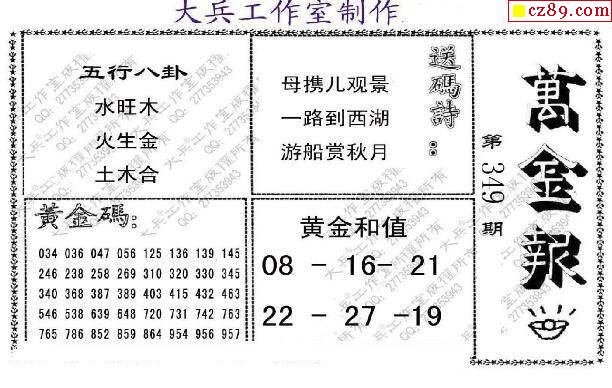 大兵工作室制作
cz89.com
五行八卦
水旺木
火生金
土木合
送碼詩：
母携儿观景
一路到西湖
游船赏秋月
萬金報
第349期
黃金碼：
034 036 047 056 125 136 139 145
246 238 258 269 310 320 330 345
340 368 387 389 403 415 432 463
546 538 639 648 720 731 742 763
765 786 852 859 864 954 956 957
黄金和值
08 - 16- 21
22 - 27 -19
大兵工作室版權所有
QQ: 277353943